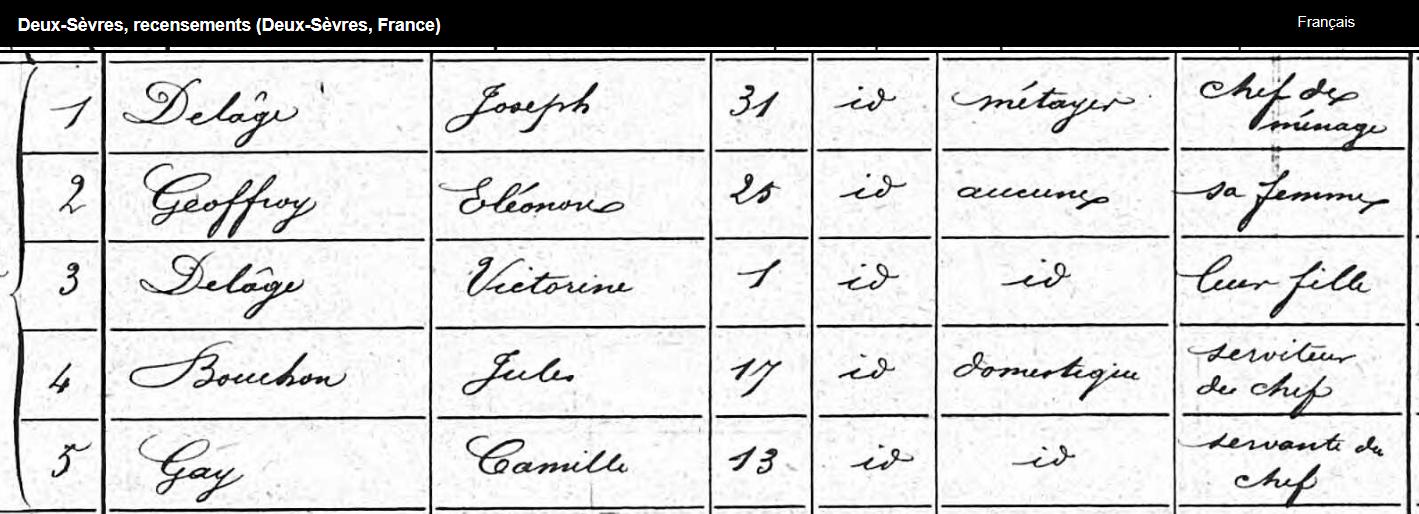 Deux-Sèvres, recensements (Deux-Sèvres, France) Français
1 Delâge Joseph 31 id métayer chef de ménage
2 Geoffroy Eléonore 25 id aucune sa femme
3 Delâge Victorine 1 id id leur fille
4 Bouchon Jules 17 id domestique serviteur du chef
5 Gay Camille 13 id id servante du chef